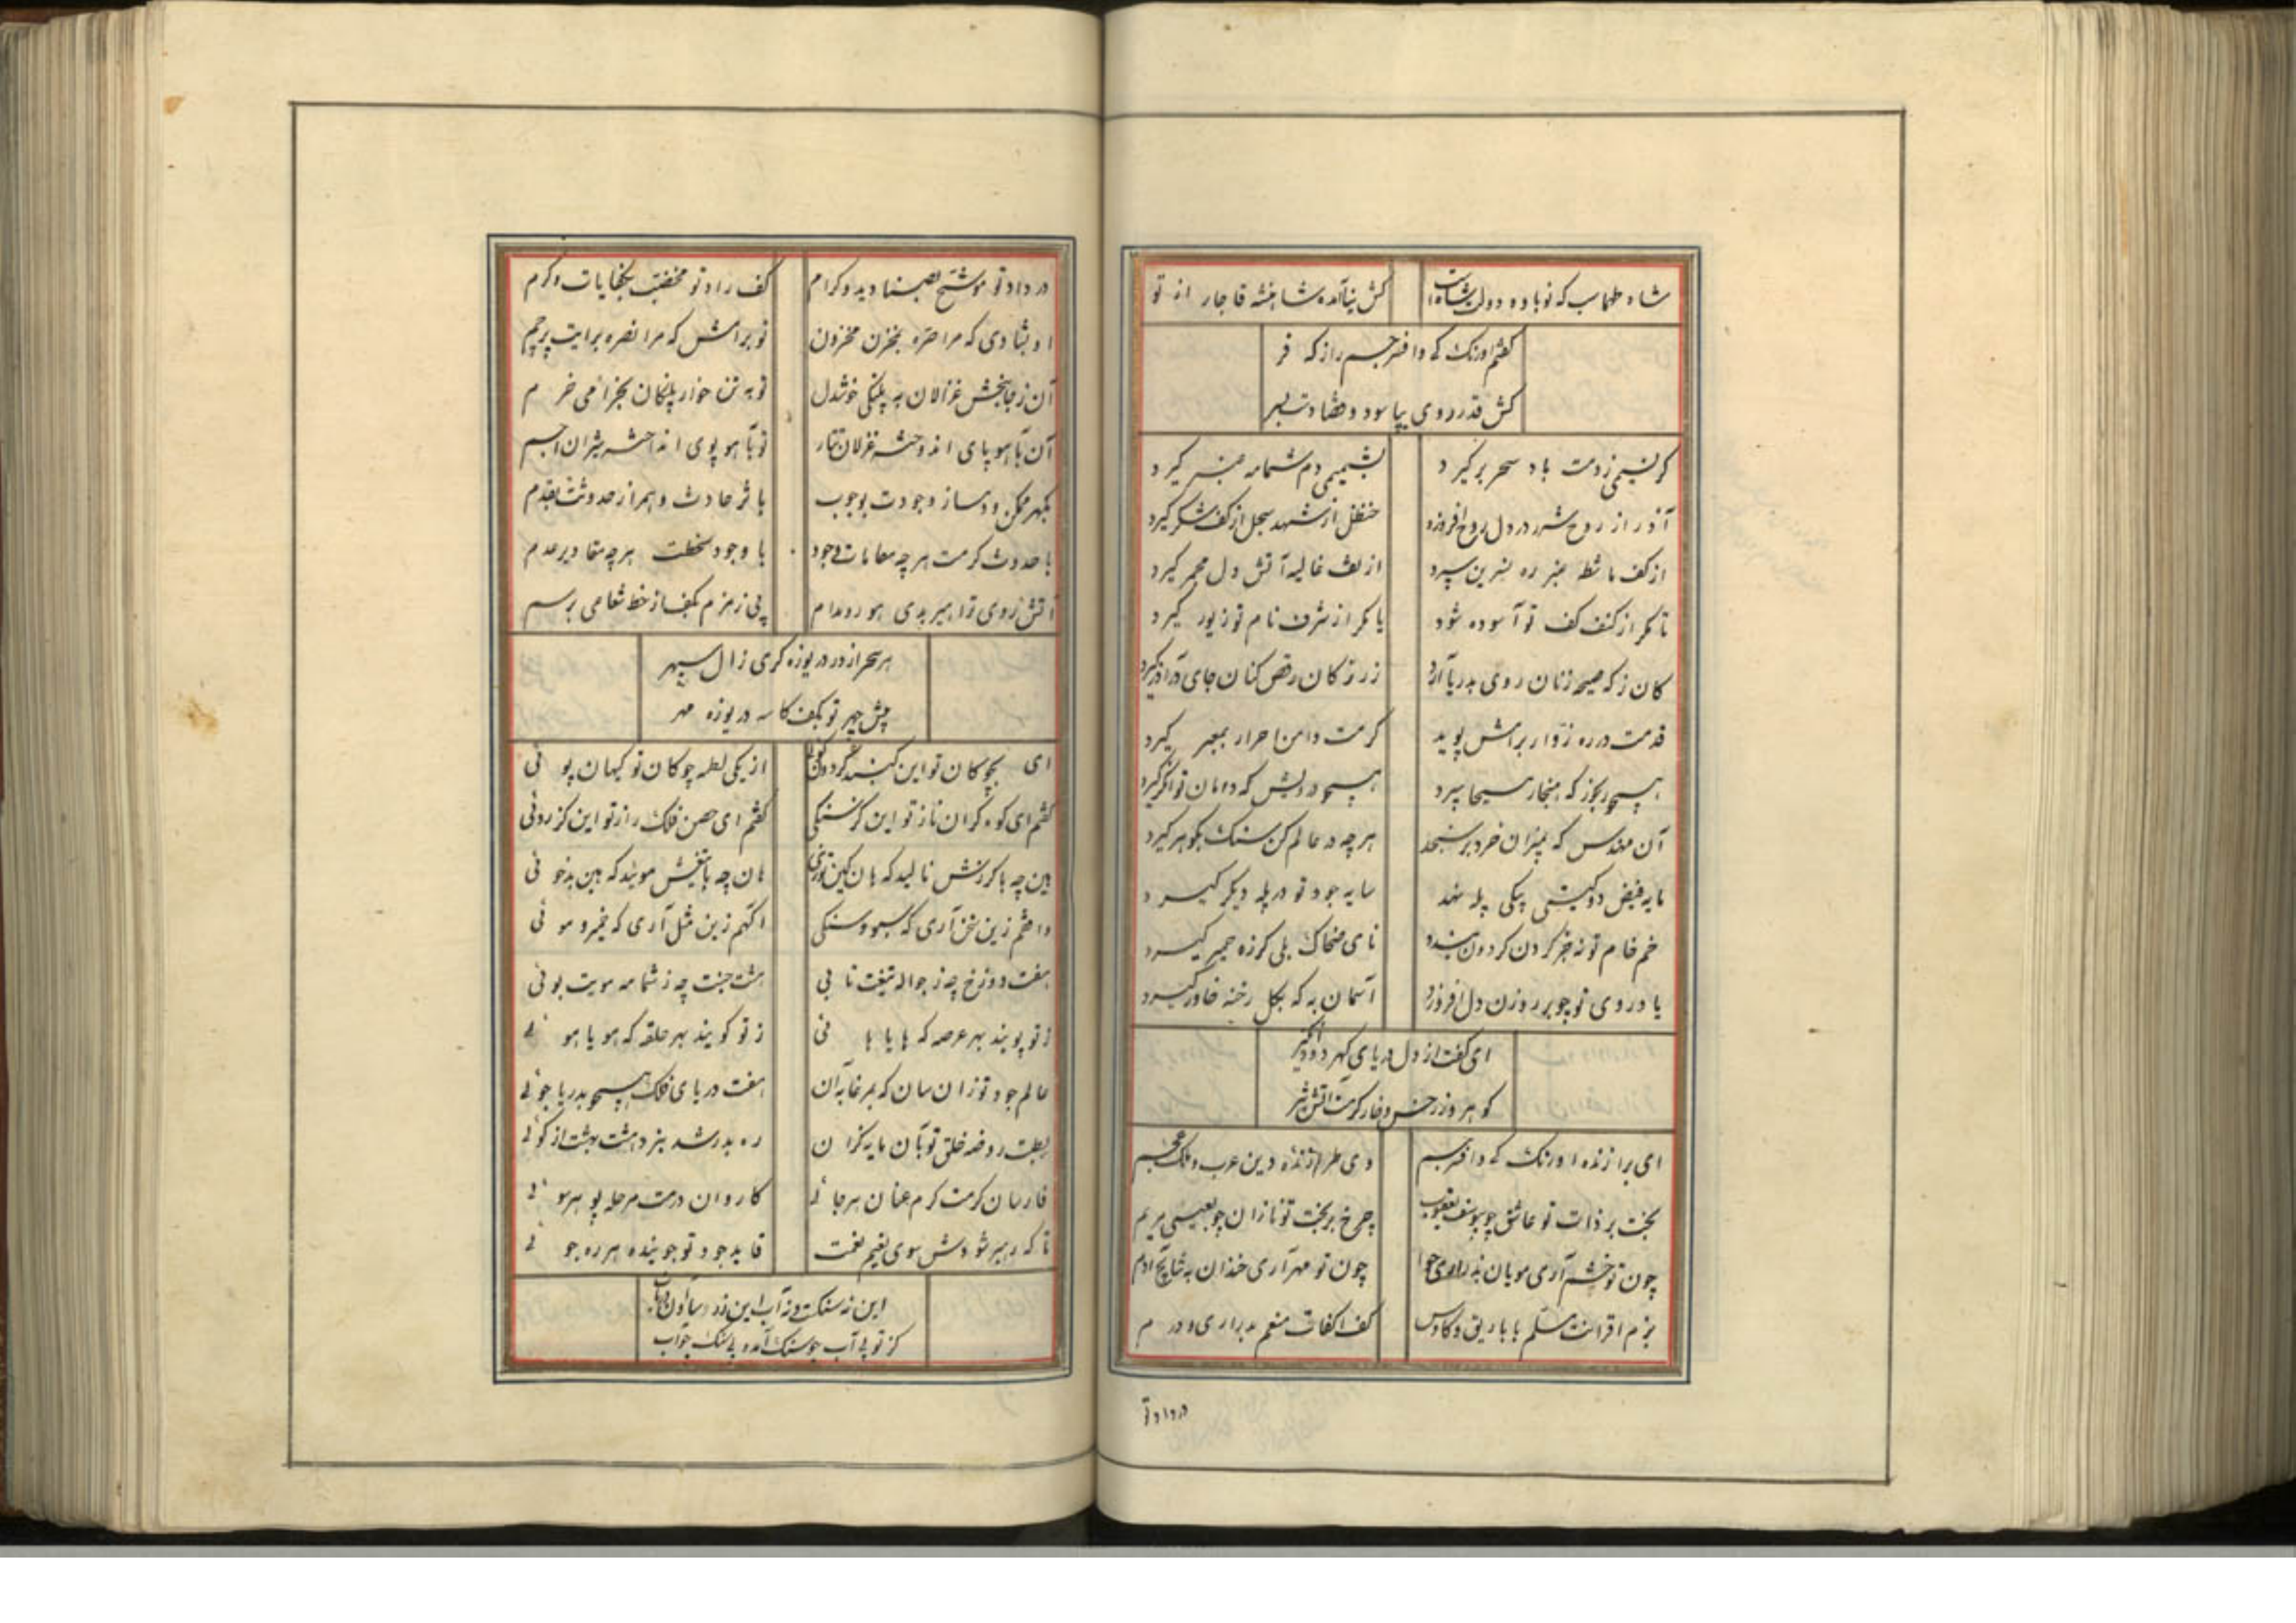 شاه طهماسب که نوباوه دولت شاه است
کش نیا آمده شاهنشه قاجار از تو
گفتم اورنگ که و افسر جم راز که فر
کش قدر روی بپا سود و قضا دست بسر
گر نسیمی ز دمت باد سحر برگیرد
بشمیمی دم شمامه عنبر گیرد
آذر از روح شرر در دل روح افروزد
حنظل از شهد سجل از کف شکر گیرد
از کف ماشطه عنبر ره نسرین سپرد
از لف غالیه آتش دل مجمر گیرد
تا مگر از کنف کف تو آسوده شود
یا مگر از شرف نام تو زیور گیرد
کان ز که صیحه زنان روی بدریا آرد
زر ز کان رقص کنان جای در آذر گیرد
قدمت در ره زوار برامش پوید
کرمت دامن احرار بمعبر گیرد
همچو رنجور که هنجار مسیحا سپرد
همچو درویش که دامان توانگر گیرد
آن مهندس که بمیزان خرد بر سنجد
هرچه در عالم کن سنگ بگوهر گیرد
مایه فیض دو گیتی بیکی پله نهد
سایه جود تو در پله دیگر گیرد
خم خام تو نه جز گردن گردون بندد
نای ضحاک بلی گرزه حمیر گیرد
یا در روی تو چو بر روزن دل افروزد
آسمان به که بگل رخنه خاور گیرد
ای کفت از دل دریای گهر دود انگیز
گوهر و زر خس و خار کرمت آتش تیز
ای برازنده اورنگ که و افسر جم
وی طرازنده دین عرب و ملک عجم
بخت بر ذات تو عاشق چو بیوسف یعقوب
چرخ بر بخت تو نازان چو بعیسی مریم
چون تو خشم آری مویان بد راوی حوا
چون تو مهر آری خندان به آدم
بزم اقرانت مسلم با باریق و کاوس
کف اکفات منعم بدراری و درم
در داد تو
در داد تو موشح بصنادید و کرام
کف راد تو مخفف بخفایات و کرم
او بشادی که مرا حتره بمخزن مخزون
تو برامش که مرا نصره برایت پرچم
آن ز جانبخش غزالان به پلنگی خوشدل
تو به تن خوار پلنگان بخرامی خرم
آن بآهو پای اندر حشه غزلان تتار
تو بآهو پوی اندر حشه شیران اجم
بگهر ممکن و دمساز وجودت بوجوب
باثر حادث و همراز حدوثت بقدم
با حدوث کرمت هرچه مقامات وجود
با وجود سخطت هرچه مقادیر عدم
آتش روی ترا هیربدی هور و مدام
پی زمزم بکف از خط شعاعی برسم
هر سحر از در دریوزه گری زال سپهر
پیش چهر تو بکف کاسه دریوزه مهر
ای بچوکان تو این گنبد گردون گوئی
از یکی لطمه چوکان تو کیهان پوئی
گفتم ای کوه گران ناز تو این گرسنگی
گفتم ای حصن فلک راز تو این گز روئی
هین چه با گرزش نالید که هان کین توزی
هان چه با تیغش موئید که هین بدخوئی
و اخشم زین سخن آری که سبو و سنگی
اکتهم زین مثل آری که خیر و موئی
هفت دوزخ چه ز جواله تیغت تابی
هشت جنت چه ز شمامه مویت بوئی
ز تو پویند بهر عرصه که هایا هائی
ز تو گویند بهر حلقه که هویا هوئی
عالم جود تو زان سان که بمرغابه آن
هفت دریای فلک همچو بدریا جوئی
بطبت روضه خلق تو بآن مایه گران
ره بدر شد بنزد هشت بهشت از کوئی
فارسان کرمت گرم عنان هرجائی
کاروان درمت مرحله پو هر سوئی
تا که رهبر شودش سوی نعیم نعمت
قاید جود تو جوینده هر ره جوئی
این نه سنگست و نه آب این ز در
کز تو بی آب چو سنگ آمده بی سنگ چو آب